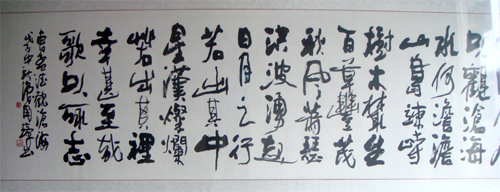 以觀滄海
水何澹澹
山島竦峙
樹木叢生
百草豐茂
秋風蕭瑟
洪波湧起
日月之行
若出其中
星漢燦爛
若出其裡
幸甚至哉
歌以詠志
觀滄海